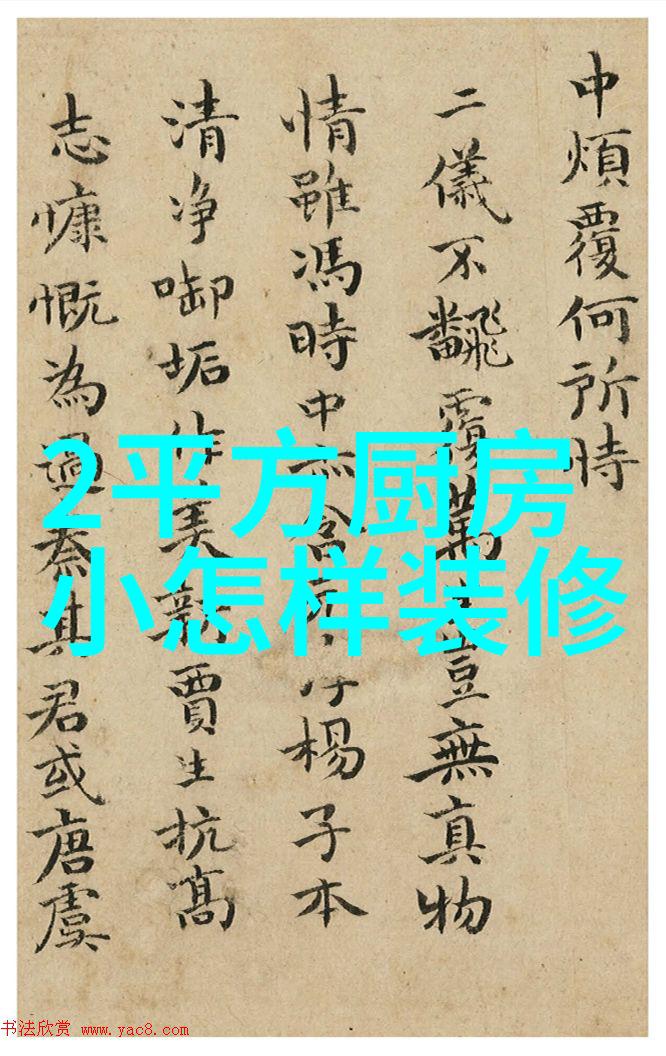 中煩覆何所時
二儀不翻覆萬豈無真物
情雖馮時中含楊子本
清净啣垢作美新賈生抗高
志慷慨為過秦其君或唐虞
2平方厨房
小怎样装修
书法欣赏 www.yac8.com